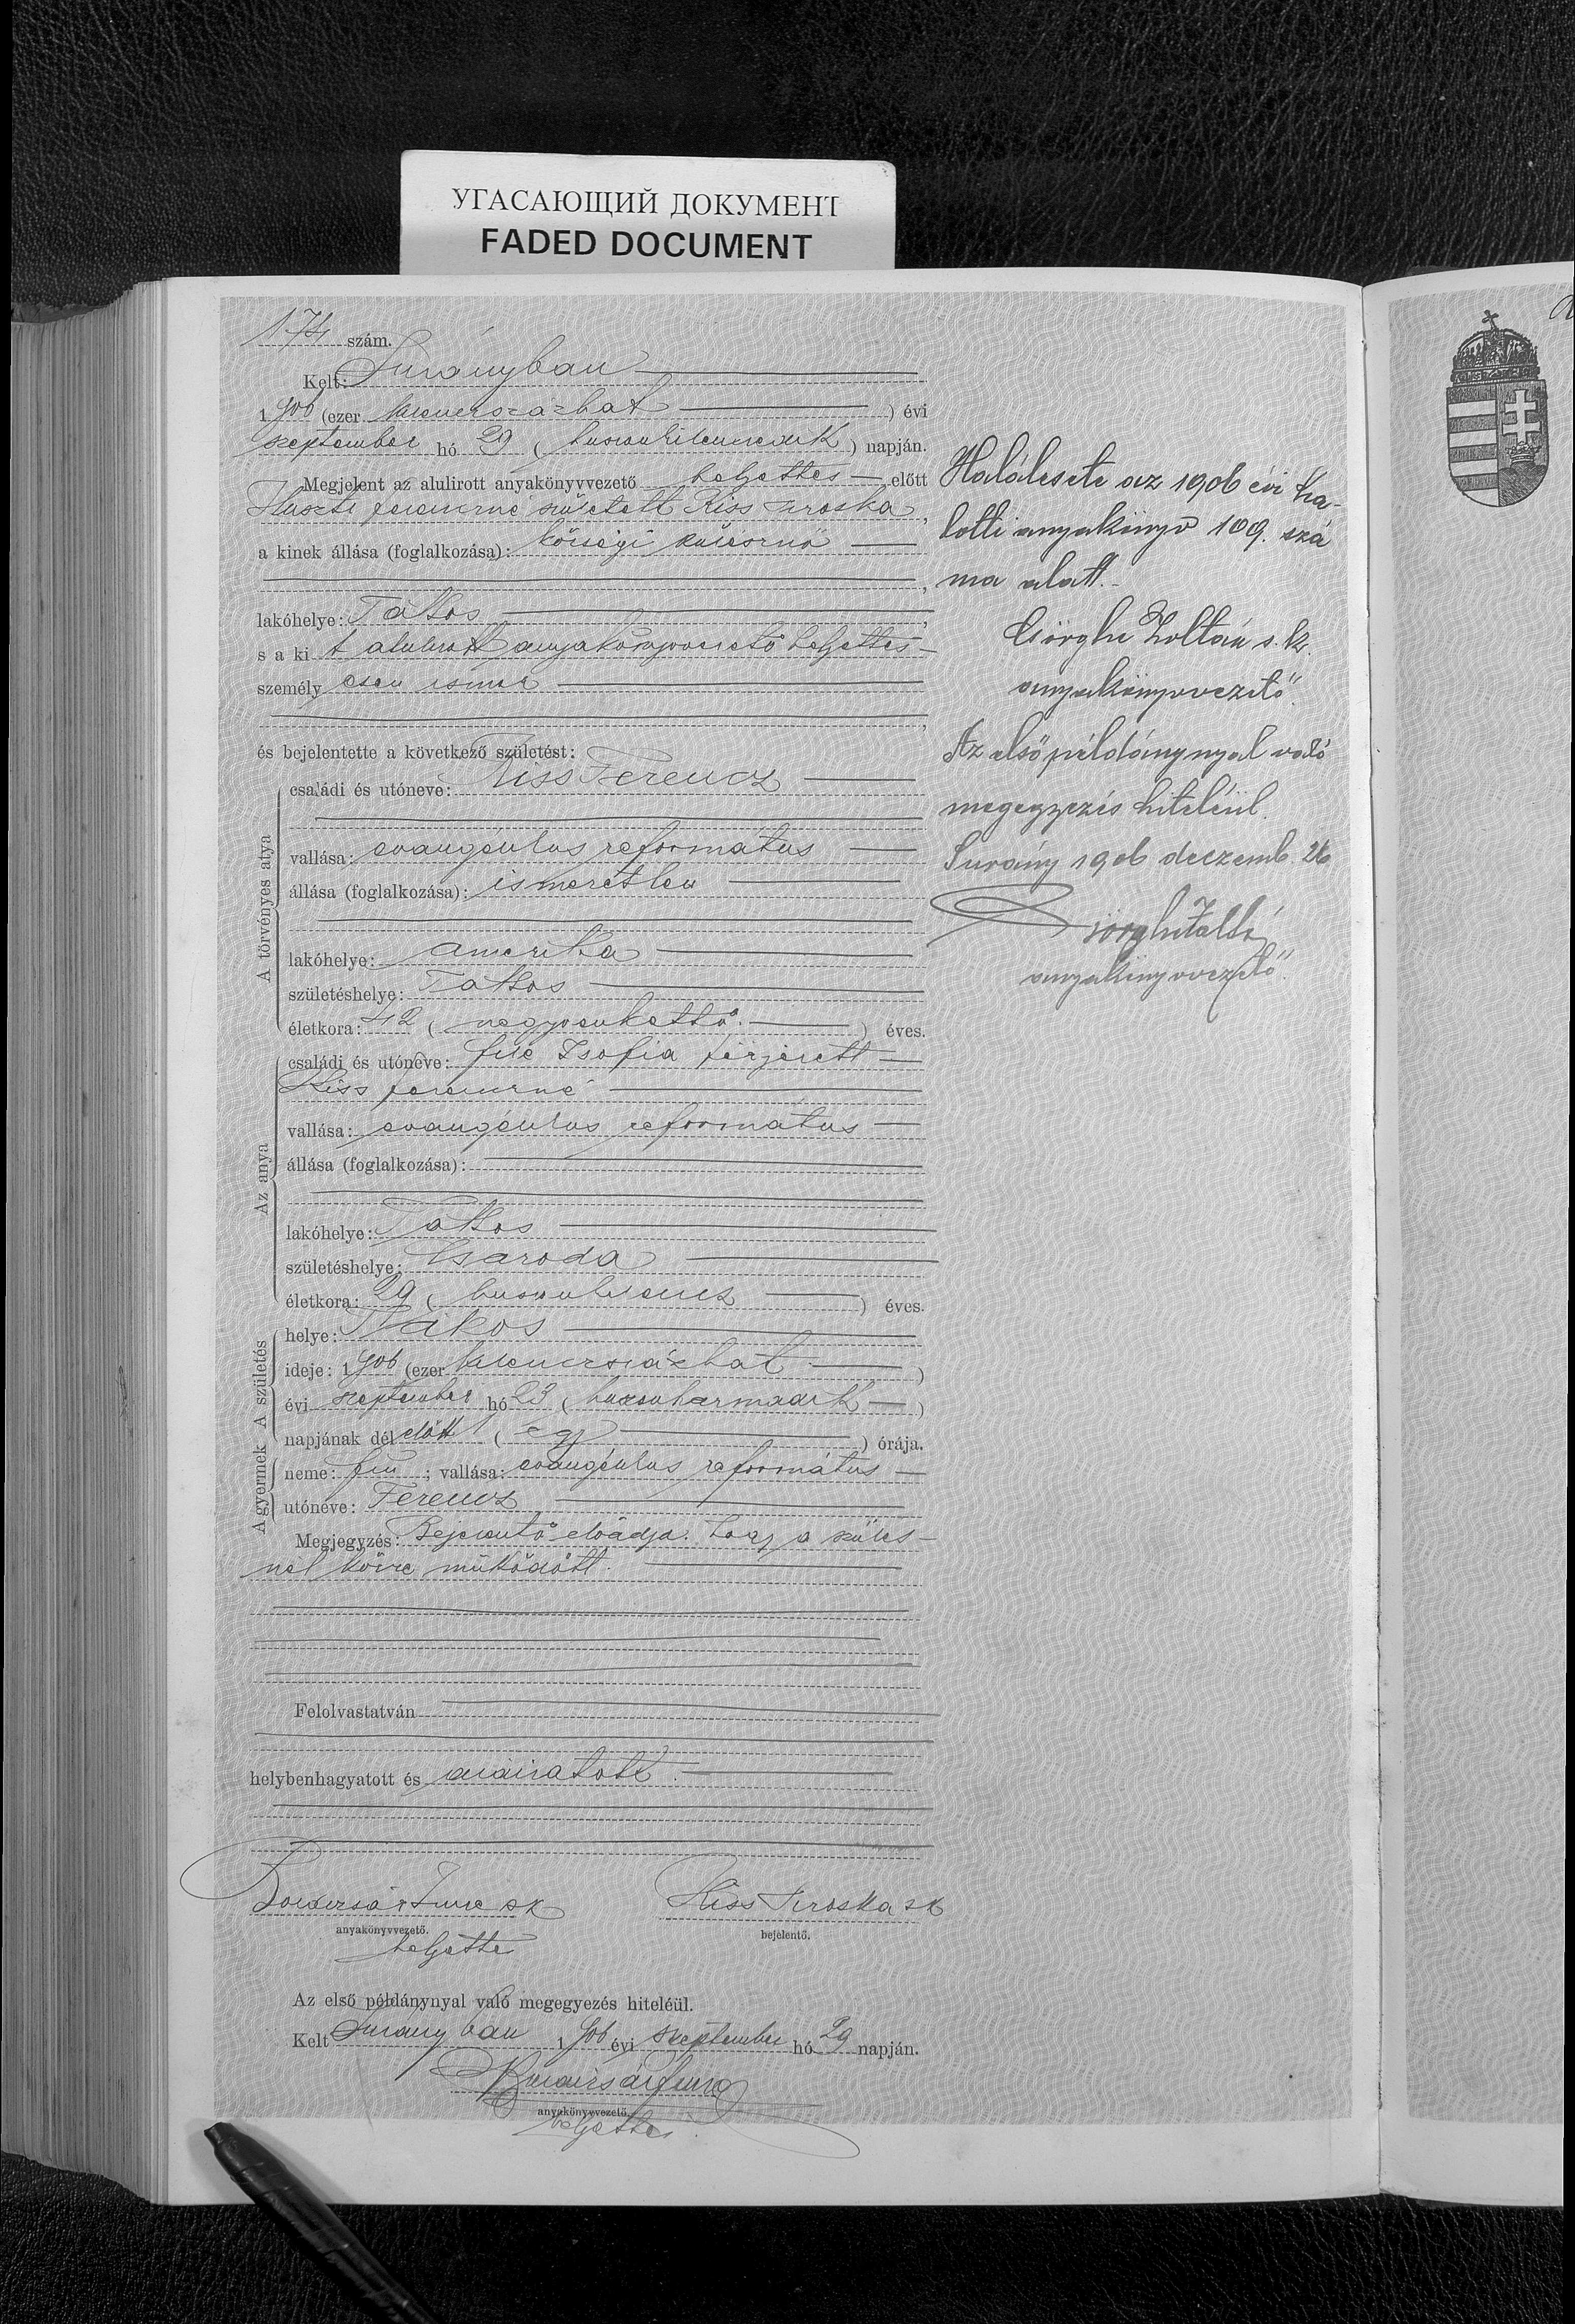 УГАСАЮЩИЙ ДОКУМЕНТ
FADED DOCUMENT
174 szám.
Kelt: Surányban
1906 (ezer kilenczszázhat ) évi
szeptember hó 29 ( huszonkilenczedik ) napján.
Megjelent az alulirott anyakönyvvezető helyettes előtt
Huszti Ferenczné született Kiss Piroska,
a kinek állása (foglalkozása): községi szülésznő
lakóhelye: Tákos
s a ki t alulirott anyakönyvvezető helyettes
személyesen ismer
és bejelentette a következő születést:
A törvényes atya
családi és utóneve: Kiss Ferencz
vallása: evangéliumi református
állása (foglalkozása): ismeretlen
lakóhelye: Amerika
születéshelye: Tákos
életkora: 42 ( negyvenkettő. ) éves.
Az anya
családi és utóneve: Zsófia férjezett
Kiss Ferenczné
vallása: evangéliumi református
állása (foglalkozása):
lakóhelye: Tákos
születéshelye: Csaroda
életkora: 29 ( huszonkilencz ) éves.
A születés
helye: Tákos
ideje: 1906 (ezer kilenczszázhat )
évi szeptember hó 23 ( huszonharmadik )
napjának dél előtt ( egy ) órája.
A gyermek
neme: fiu ; vallása: evangéliumi református
utóneve: Ferencz
Megjegyzés: Bejelentő előadja. hogy a szülés-
nél működött.
Felolvastatván
helybenhagyatott és aláiratott.
Imre sk
Kiss Piroska sk
anyakönyvvezető.
bejelentő.
helyettes
Az első példánynyal való megegyezés hiteléül.
Kelt Surányban 1906 évi szeptember hó 29 napján.
anyakönyvvezető.
helyettes.
Halálesete az 1906 évi ha-
lotti anyakönyv 109. szá
ma alatt.-
Csörghe Zoltán s. k.
anyakönyvvezető.
Az első példánynyal való
megegyezés hiteléül.
Surány 1906 deczemb. 26
anyakönyvvezető.